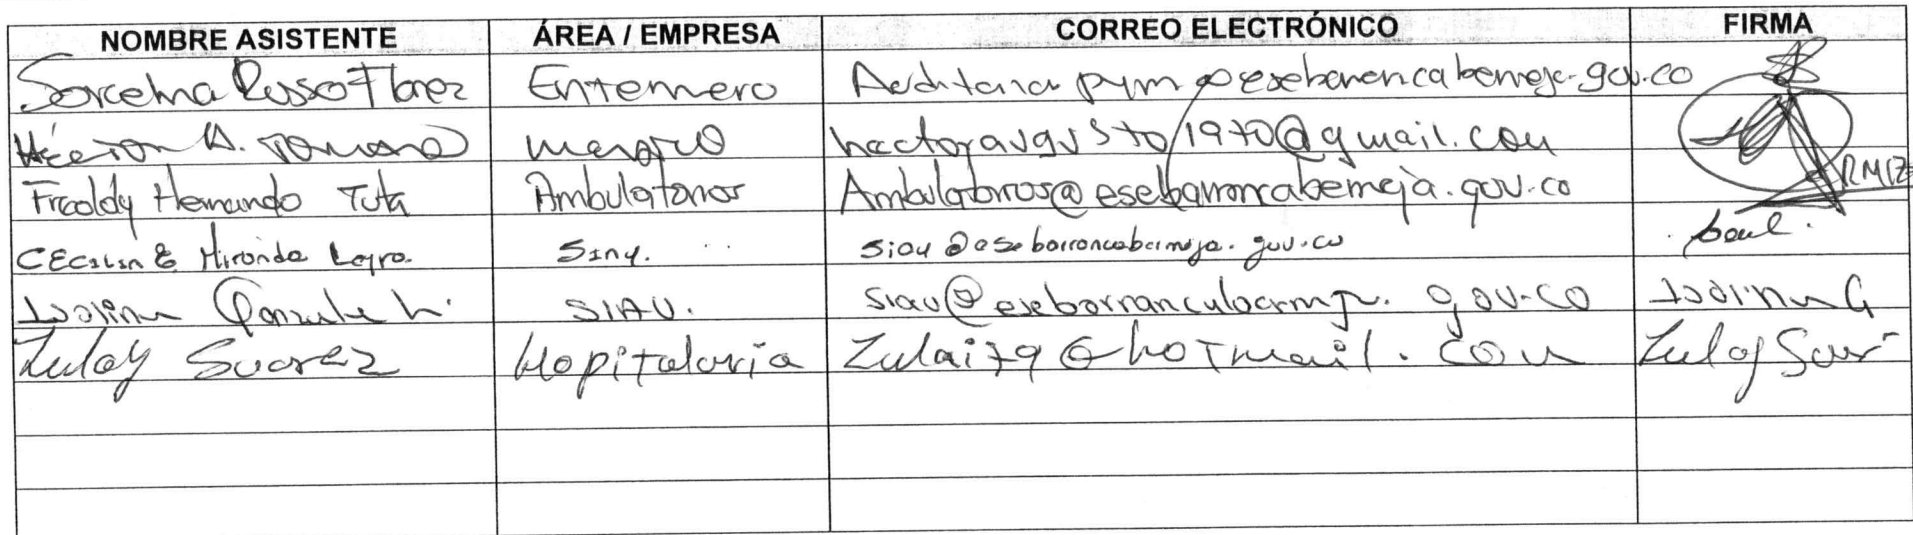 NOMBRE ASISTENTE ÁREA / EMPRESA CORREO ELECTRÓNICO FIRMA
Flórez Enfermero Auditoria pym@esebarrancabermeja.gov.co
Héctor A. médico hectoraugusto1970@gmail.com
Freddy Hernando Tuta Ambulatorios Ambulatorios@esebarrancabermeja.gov.co RMIZ
Cecilia E Miranda SIAU. siau@esebarrancabermeja.gov.co
Isolina SIAU. siau@esebarrancabermeja.gov.co Isolina G
Zulay Suarez Hopitalaria Zulai79@hotmail.com Zulay